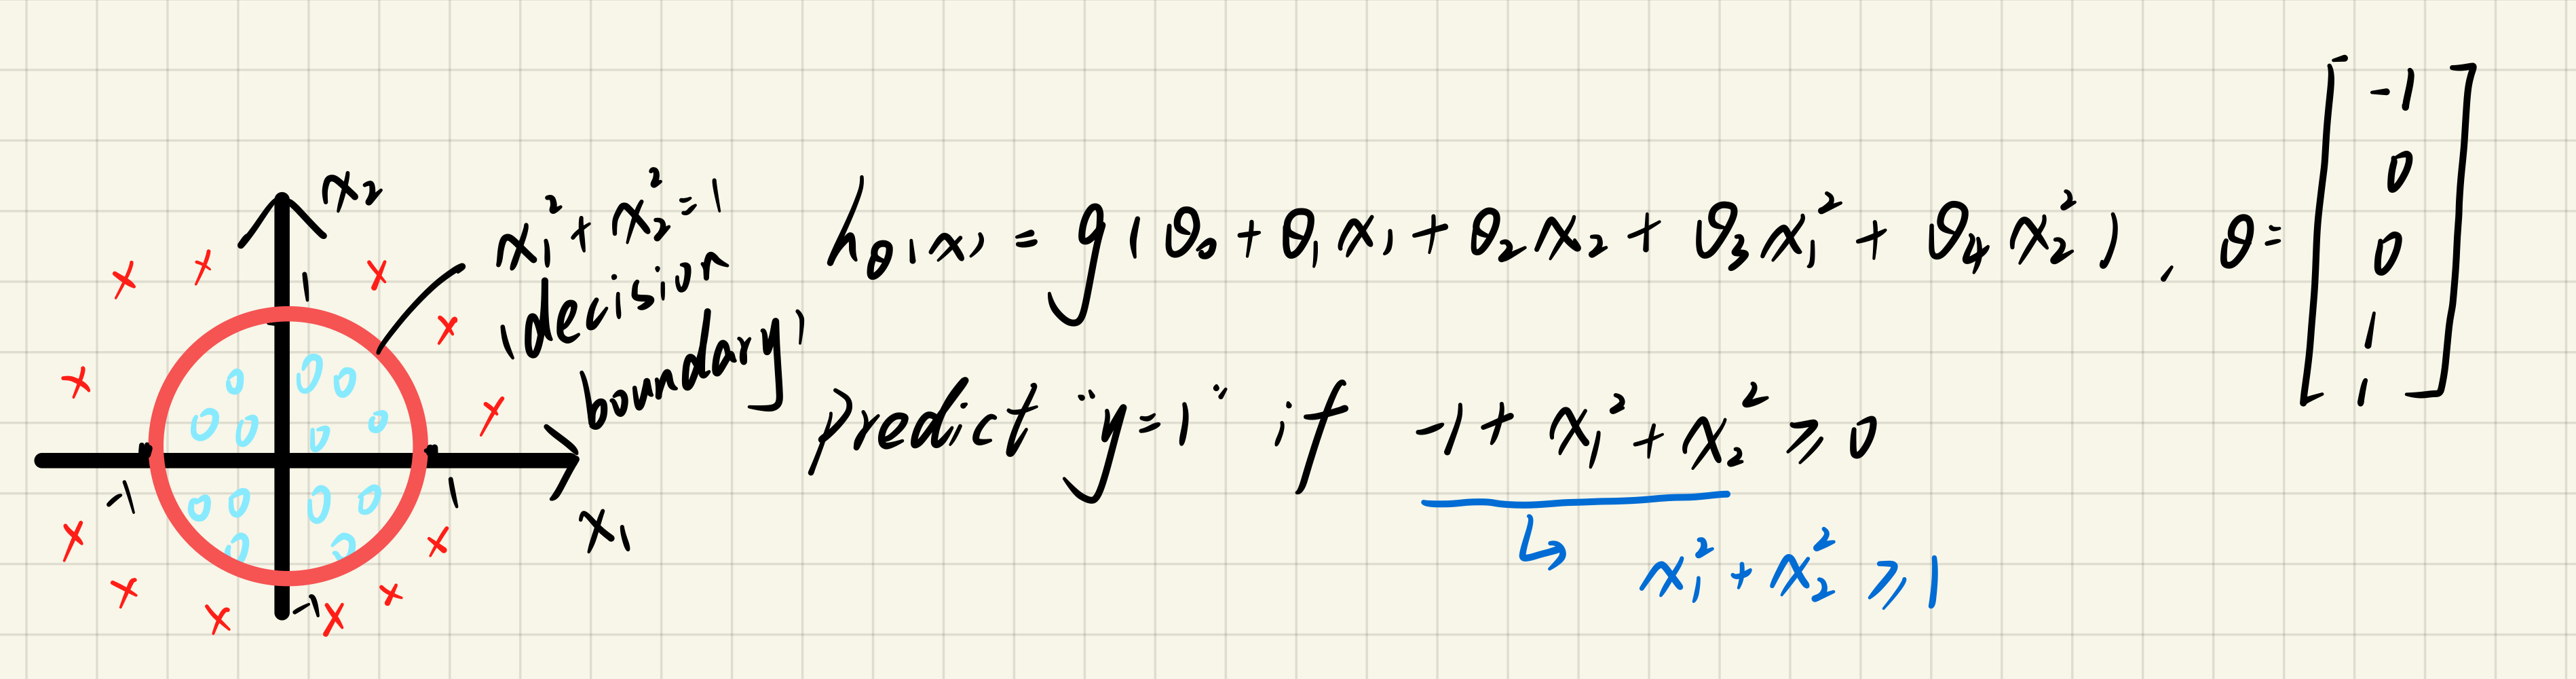 x₂
1
-1
1
x₁
-1
x₁² + x₂² = 1
(decision
boundary)
h_θ(x) = g(θ₀ + θ₁x₁ + θ₂x₂ + θ₃x₁² + θ₄x₂²), θ = [-1 0 0 1 1]
predict "y=1" if -1 + x₁² + x₂² ≥ 0
↳ x₁² + x₂² ≥ 1